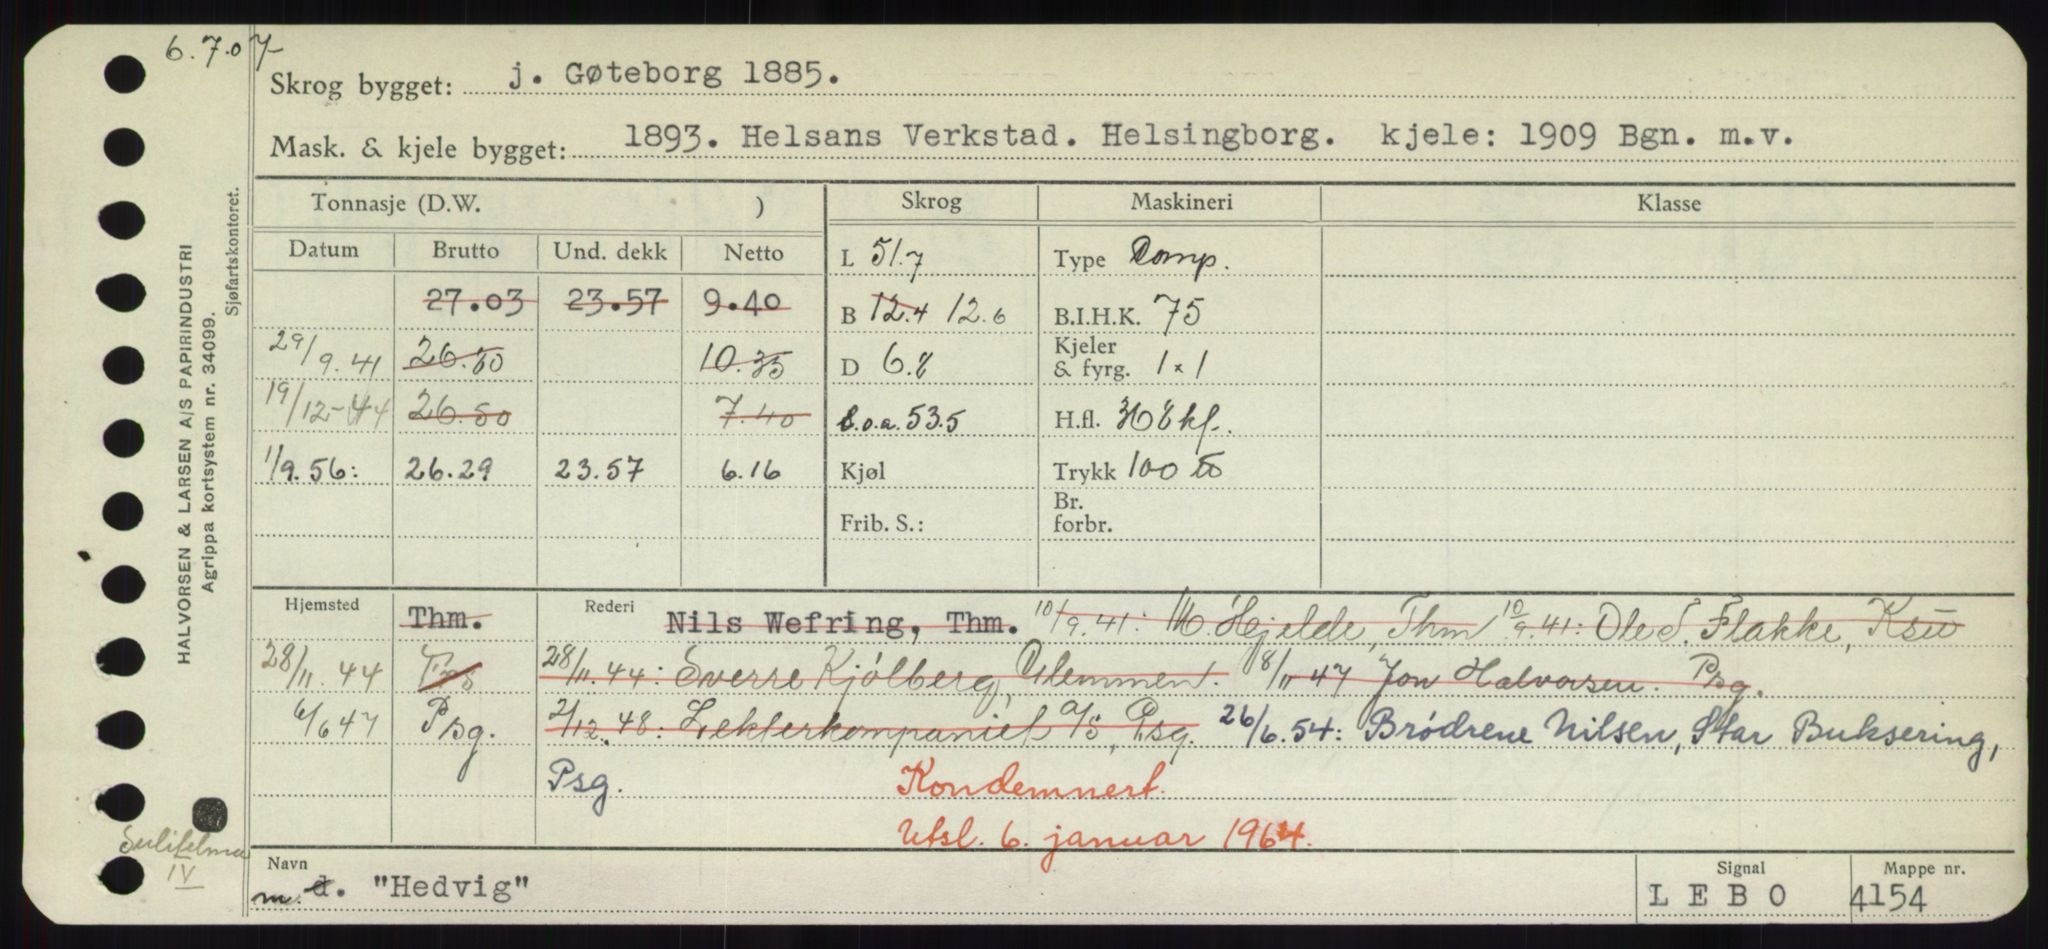 6.7.07
Skrog bygget: j. Gøteborg 1885.
Mask. & kjele bygget: 1893. Helsans Verkstad. Helsingborg. kjele: 1909 Bgn. m.v.
HALVORSEN & LARSEN A/S PAPIRINDUSTRI
Agrippa kortsystem nr. 34099.
Sjøfartskontoret.
Tonnasje (D.W. ) Skrog Maskineri Klasse
Datum Brutto Und. dekk Netto L 51.7 Type Comp.
27.03 23.57 9.40 B 12.4 12.6 B.I.H.K. 75
29/9.41 26.80 10.35 D 6.8 Kjeler & fyrg. 1 x 1
19/12-44 26.80 7.40 L.o.a. 53.5 H.fl. 308 kf.
1/9.56: 26.29 23.57 6.16 Kjøl Trykk 100 lb
Frib. S.: Br. forbr.
Hjemsted Thm. Rederi Nils Wefring, Thm. 10/9.41: M. Hjelde, Thm 10/9.41: Ole S. Flakke, Ksu
28/11.44 28/11.44: Sverre Kjölberg, Glemmen. 8/11 47 Jon Halvorsen. Psg.
6/6 47 Psg. 2/12.48: Lekterkompaniet a/s, Psg. 26/6.54: Brödrene Nilsen, Star Buksering,
Psg. Kondemnert.
Utsl. 6. januar 1964.
Sulitelma IV
Navn m. d. "Hedvig" Signal L E B O Mappe nr. 4154